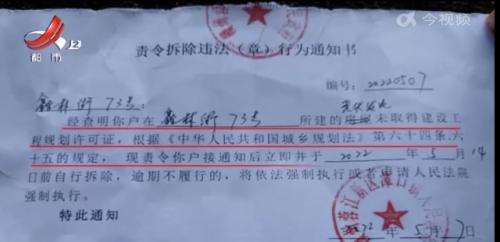 都市 2
今视频
责令拆除违法(章)行为通知书
编号:20220507
鑫林街73号:
经查明你户在 鑫林街 73号 所建的 未取得建设工
程规划许可证,根据《中华人民共和国城乡规划法》第六十四条、六
十五的规定,现责令你户接通知后立即并于 2022 年 5 月 14
日前自行拆除,逾期不履行的,将依法强制执行或者申请人民法院
强制执行。
特此通知
2022年5月7日